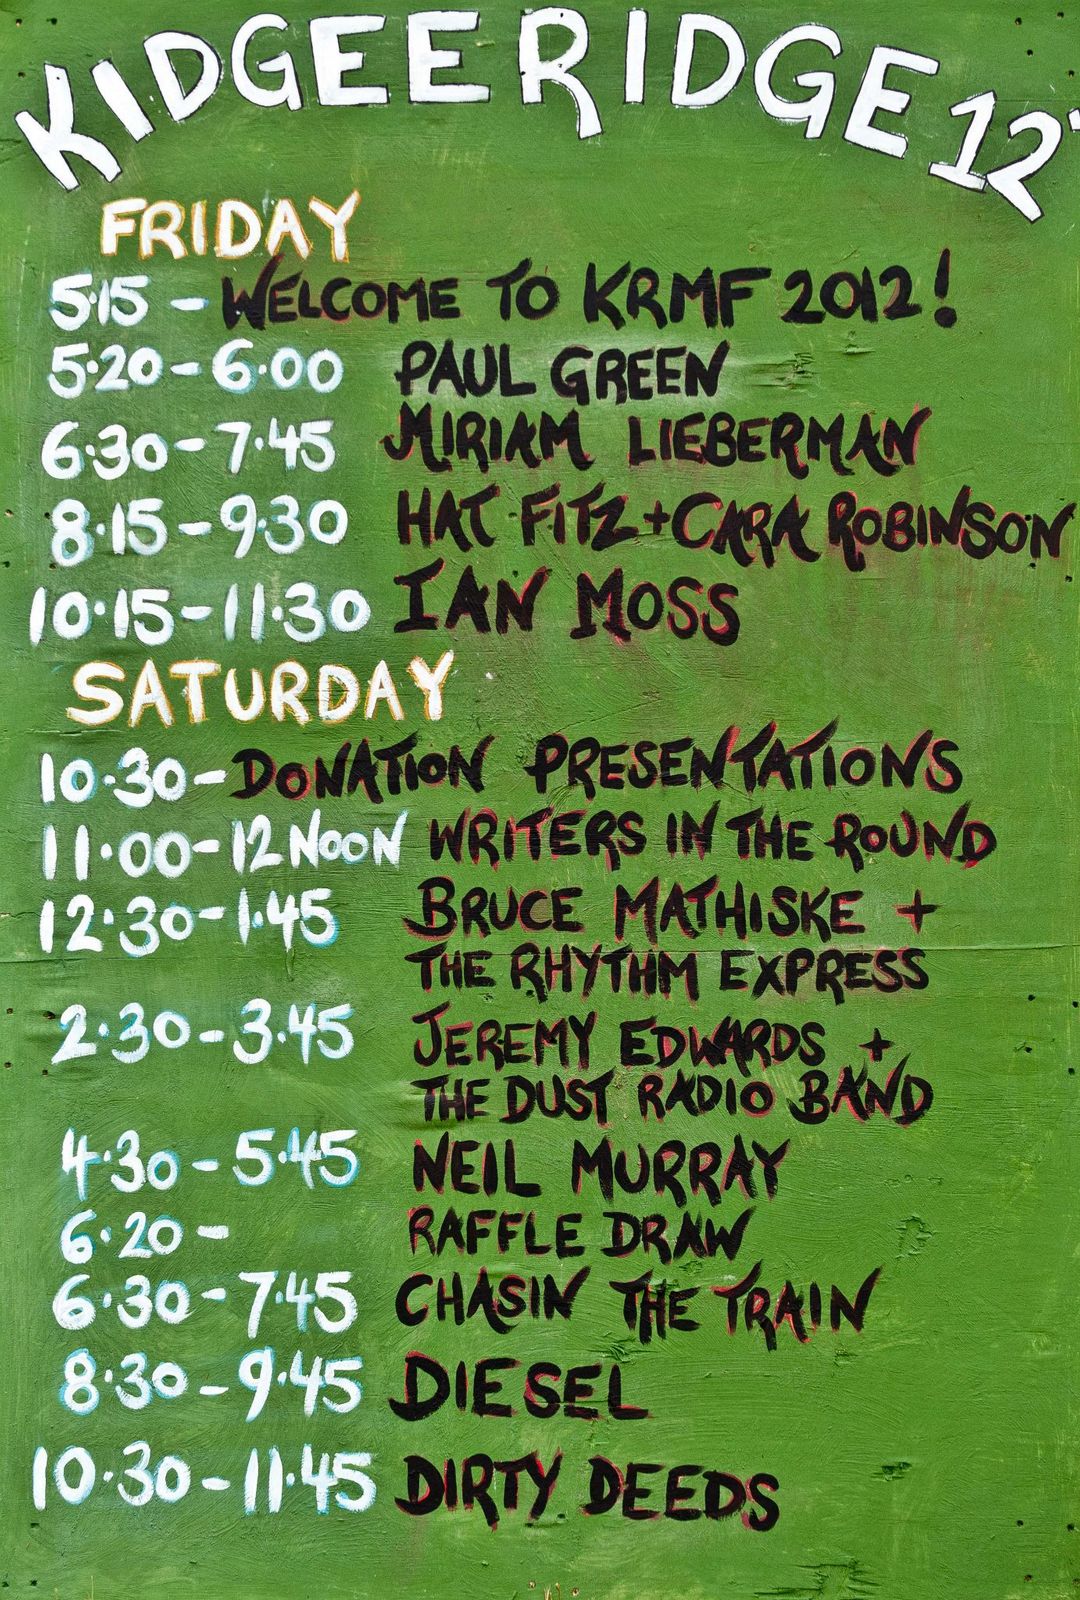 KIDGEE RIDGE 12'
FRIDAY
5·15 - WELCOME TO KRMF 2012!
5·20 - 6·00 PAUL GREEN
6·30 - 7·45 MIRIAM LIEBERMAN
8·15 - 9·30 HAT FITZ + CARA ROBINSON
10·15 - 11·30 IAN MOSS
SATURDAY
10·30 - DONATION PRESENTATIONS
11·00 - 12 NOON WRITERS IN THE ROUND
12·30 - 1·45 BRUCE MATHISKE +
THE RHYTHM EXPRESS
2·30 - 3·45 JEREMY EDWARDS +
THE DUST RADIO BAND
4·30 - 5·45 NEIL MURRAY
6·20 - RAFFLE DRAW
6·30 - 7·45 CHASIN THE TRAIN
8·30 - 9·45 DIESEL
10·30 - 11·45 DIRTY DEEDS